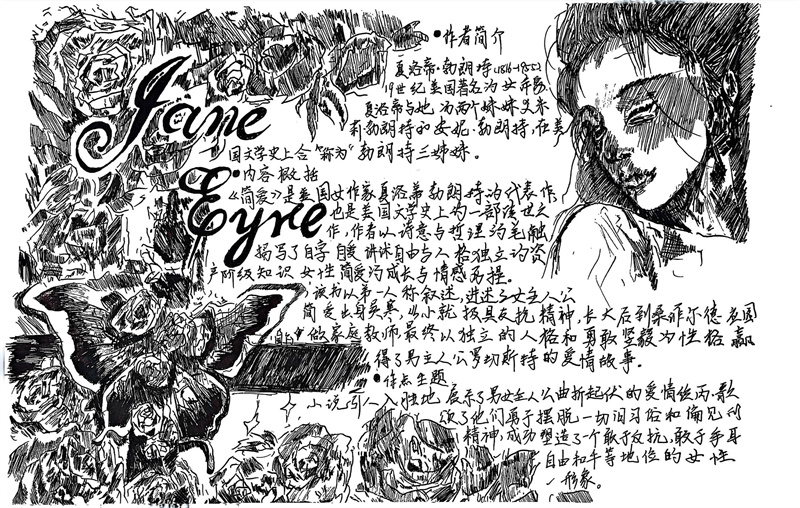 Jane
Eyre
•作者简介
夏洛蒂·勃朗特(1816-1855)
19世纪英国著名女作家
夏洛蒂与她的两个妹妹艾米
莉勃朗特和安妮·勃朗特,在英
国文学史上合"称为"勃朗特三姊妹。
•内容概括
《简爱》是英国女作家夏洛蒂勃朗特的代表作,
也是英国文学史上的一部传世之
作,作者以诗意与哲理的笔触
描写了自字自爱讲述自由与人格独立的资
产阶级知识女性简爱的成长与情感历程。
该书以第一人称叙述,讲述了女主人公
简爱出身贫寒,从小就极具反抗精神,长大后到桑菲尔德庄园
做家庭教师最终以独立的人格和勇敢坚毅的性格赢
得了男主人公罗切斯特的爱情故事。
•作品主题
小说引人入胜地展示了男女主人公曲折起伏的爱情经历,歌
颂了他们勇于摆脱一切旧习俗和偏见的
精神,成功塑造了个敢于反抗,敢于争取
自由和平等地位的女性
形象。